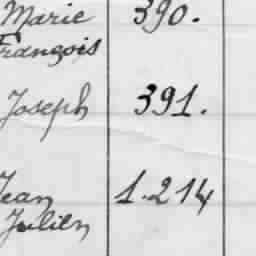 Marie 390.
François
Joseph 391.
Jean 1.214
Julien